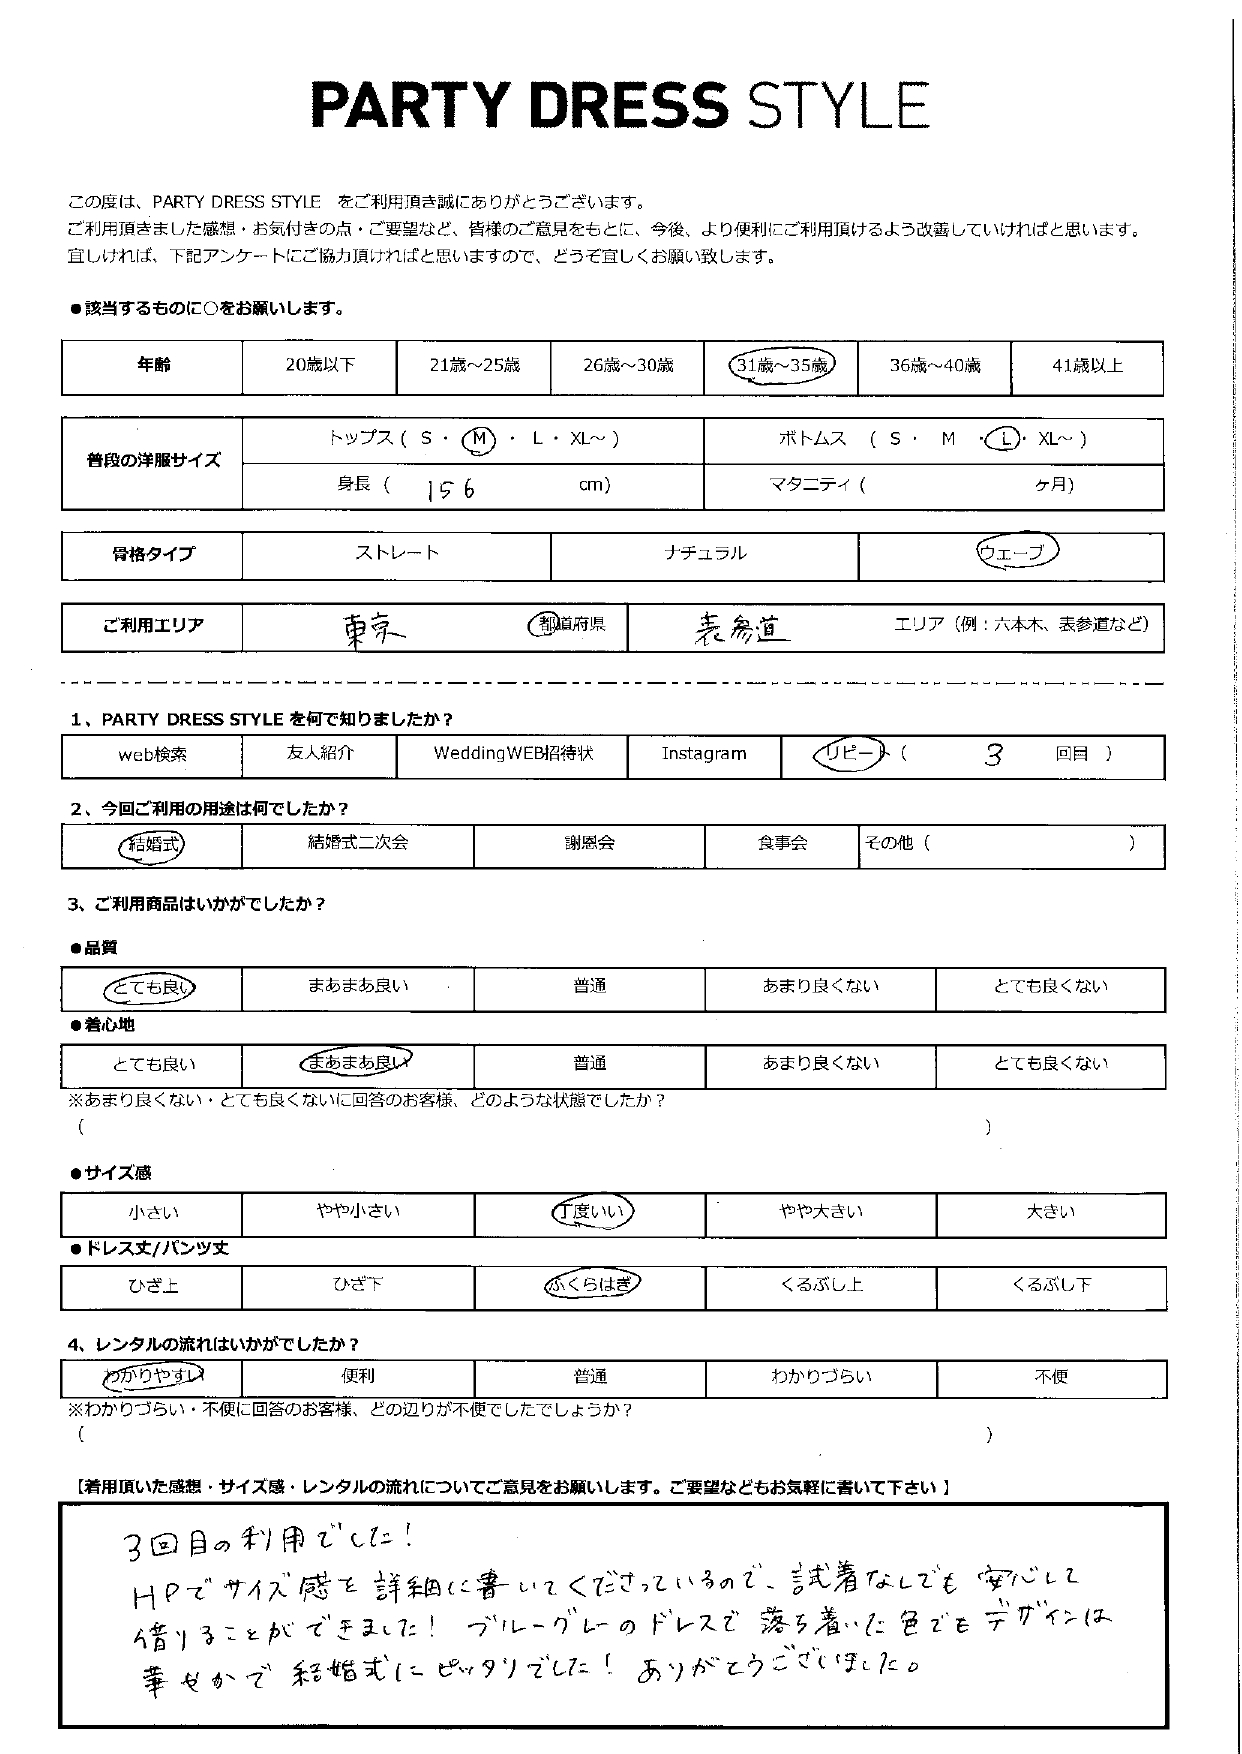 PARTY DRESS STYLE
この度は、PARTY DRESS STYLE をご利用頂き誠にありがとうございます。
ご利用頂きました感想・お気付きの点・ご要望など、皆様のご意見をもとに、今後、より便利にご利用頂けるよう改善していければと思います。
宜しければ、下記アンケートにご協力頂ければと思いますので、どうぞ宜しくお願い致します。
●該当するものに○をお願いします。
年齢 20歳以下 21歳～25歳 26歳～30歳 31歳～35歳 36歳～40歳 41歳以上
普段の洋服サイズ トップス ( S ・ M ・ L ・ XL～ ) ボトムス ( S ・ M ・ L ・ XL～ )
身長 ( 156 cm) マタニティ ( ヶ月)
骨格タイプ ストレート ナチュラル ウェーブ
ご利用エリア 東京 都道府県 表参道 エリア（例：六本木、表参道など）
1、PARTY DRESS STYLE を何で知りましたか？
web検索 友人紹介 WeddingWEB招待状 Instagram リピート ( 3 回目 )
2、今回ご利用の用途は何でしたか？
結婚式 結婚式二次会 謝恩会 食事会 その他 ( )
3、ご利用商品はいかがでしたか？
●品質
とても良い まあまあ良い 普通 あまり良くない とても良くない
●着心地
とても良い まあまあ良い 普通 あまり良くない とても良くない
※あまり良くない・とても良くないに回答のお客様、どのような状態でしたか？
( )
●サイズ感
小さい やや小さい 丁度いい やや大きい 大きい
●ドレス丈/パンツ丈
ひざ上 ひざ下 ふくらはぎ くるぶし上 くるぶし下
4、レンタルの流れはいかがでしたか？
わかりやすい 便利 普通 わかりづらい 不便
※わかりづらい・不便に回答のお客様、どの辺りが不便でしたでしょうか？
( )
【着用頂いた感想・サイズ感・レンタルの流れについてご意見をお願いします。ご要望などもお気軽に書いて下さい 】
3回目の利用でした！
HPでサイズ感を詳細に書いてくださっているので、試着なしでも安心して
借りることができました！ ブルーグレーのドレスで落ち着いた色でもデザインは
華やかで結婚式にピッタリでした！ ありがとうございました。